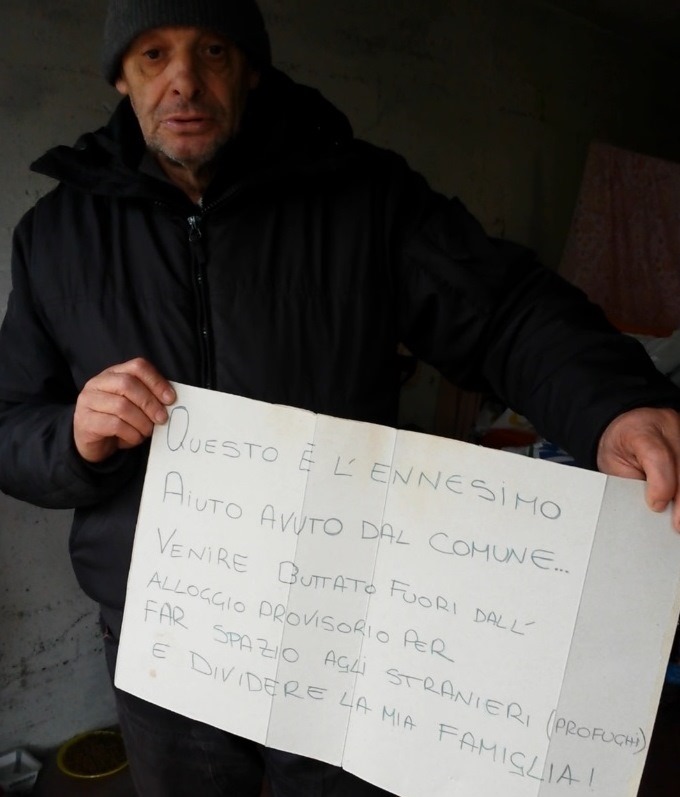 QUESTO È L'ENNESIMO
AIUTO AVUTO DAL COMUNE...
VENIRE BUTTATO FUORI DALL'
ALLOGGIO PROVISORIO PER
FAR SPAZIO AGLI STRANIERI (PROFUGHI)
E DIVIDERE LA MIA FAMIGLIA!